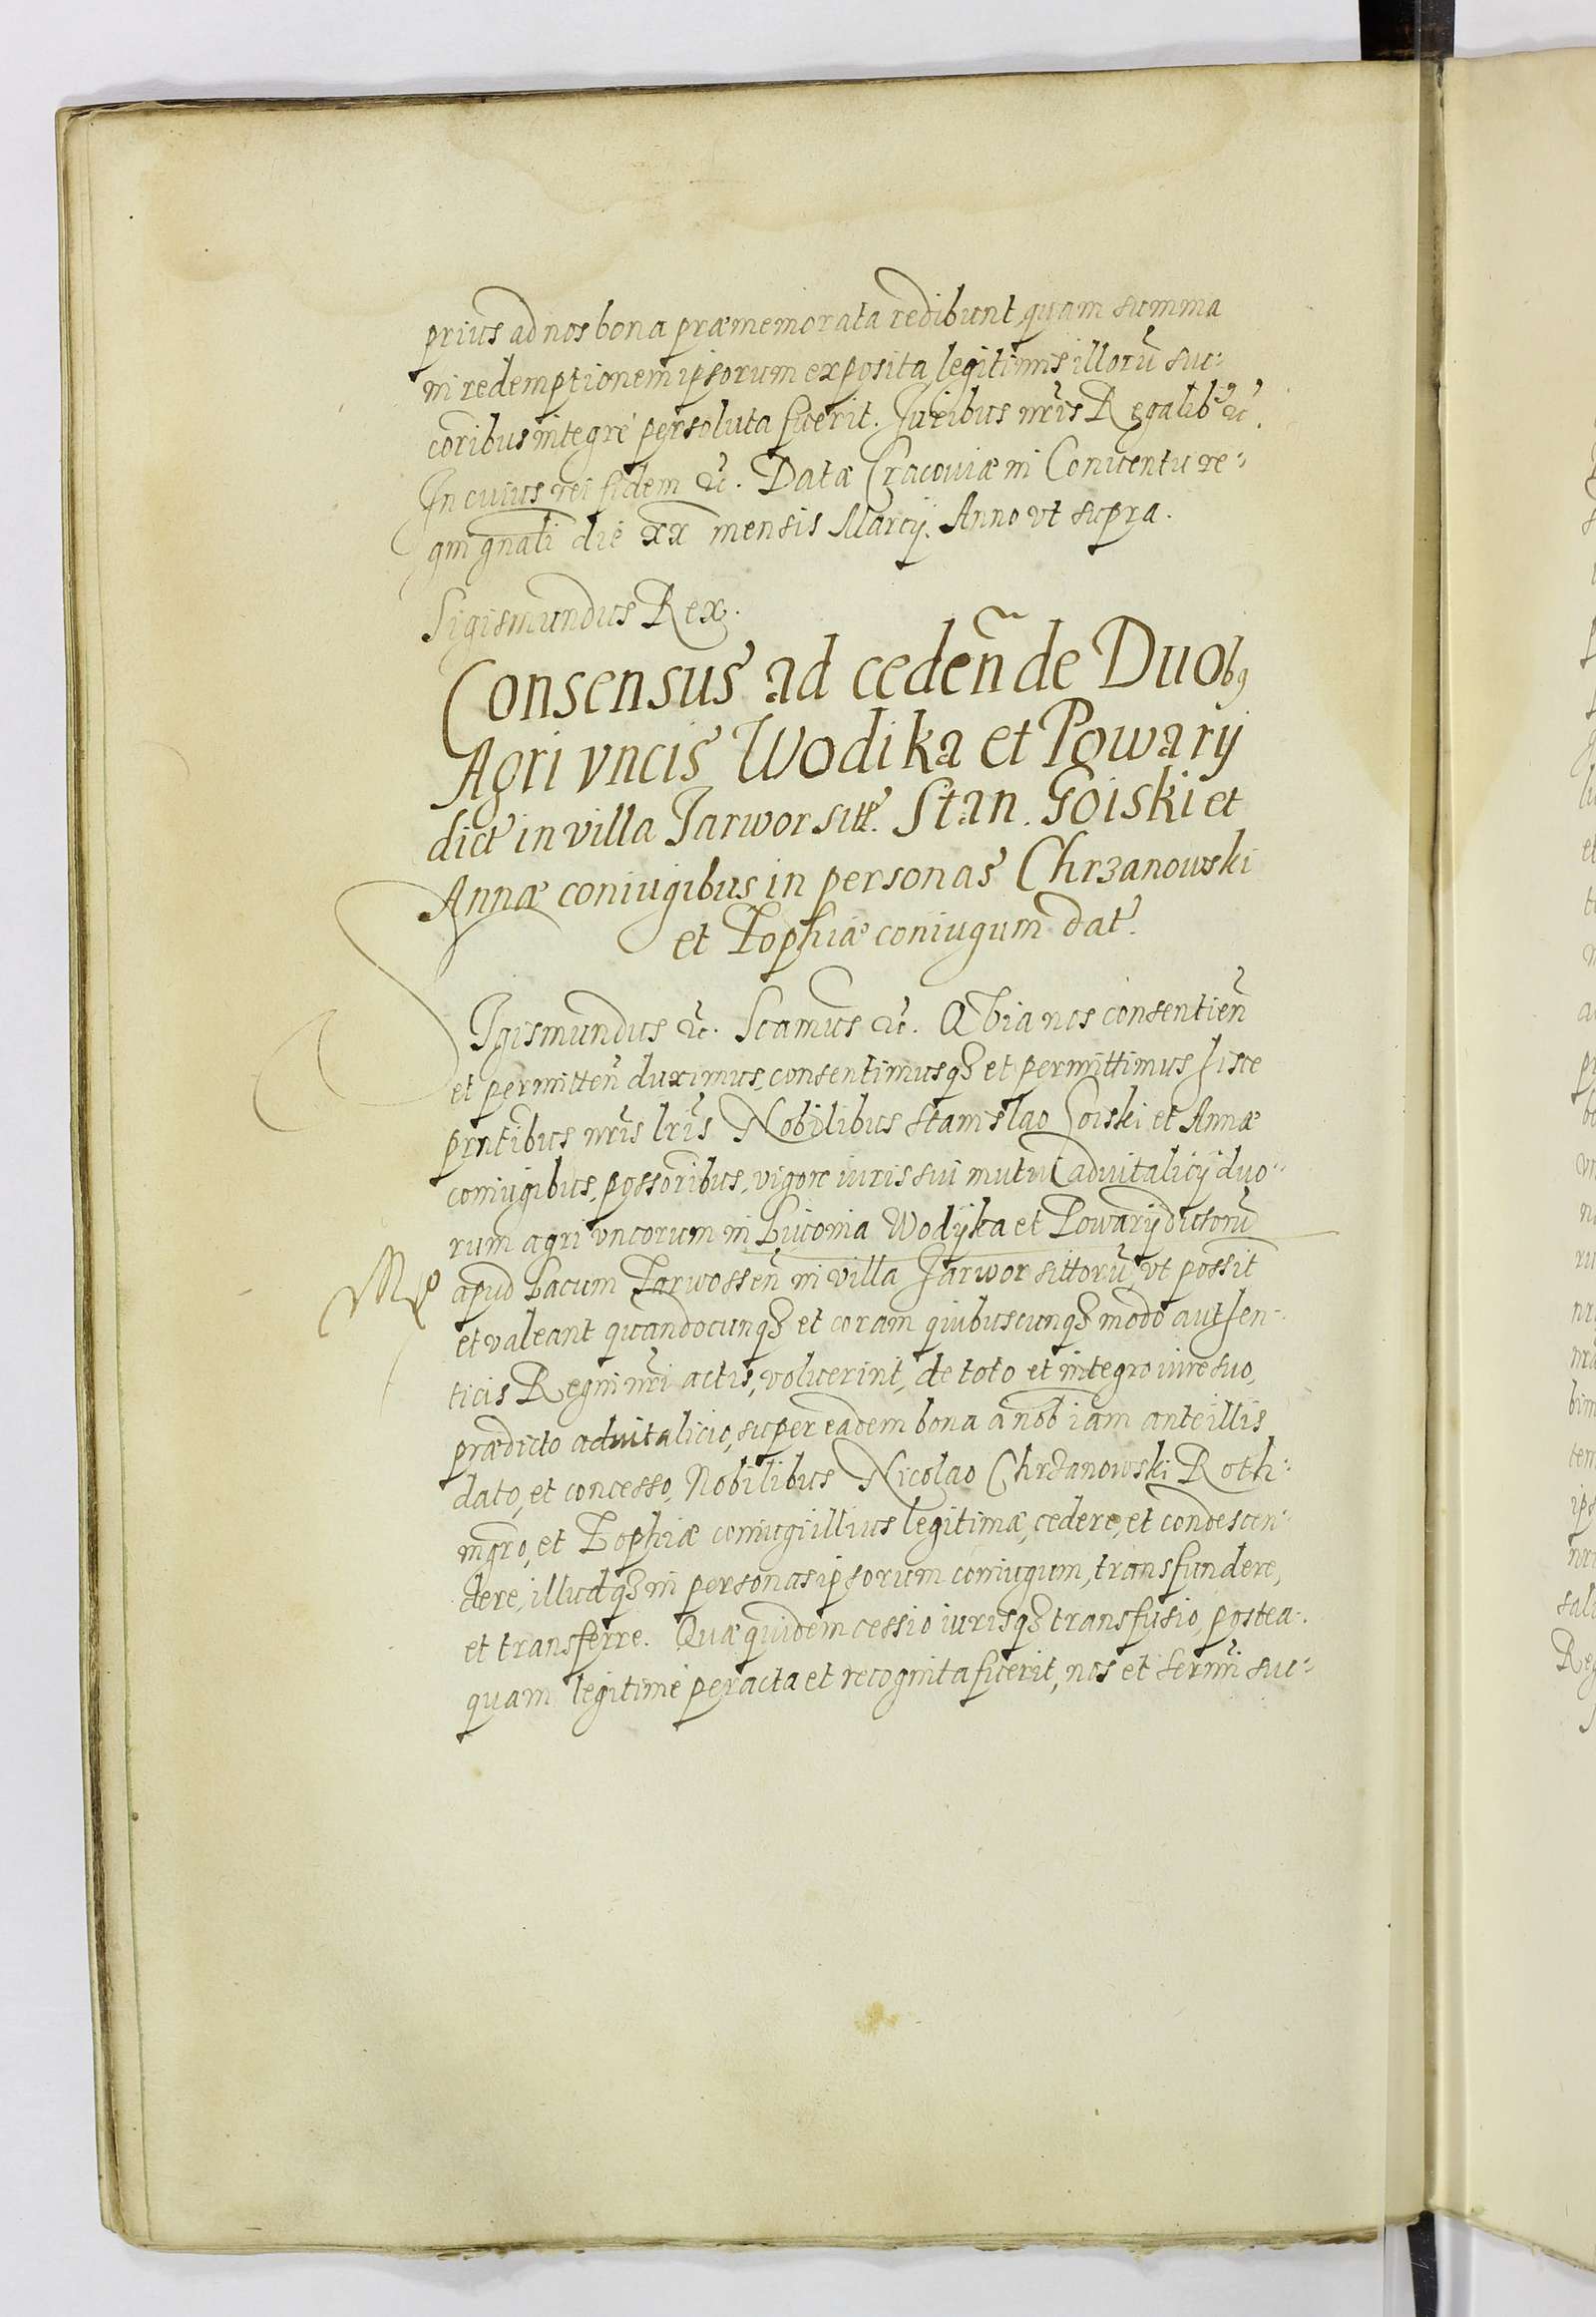 prius ad nos bona præmemorata redibunt, quam summa
in redemptionem ipsorum exposita, legitimis illorū suc-
coribus integrè persoluta fuerit. Juribus nr̄is Regalib9 &c.
In cuius rei fidem &c. Datæ Cracouiæ in Conuentu re-
gni gn̄ali die xx mensis Marcij. Anno vt supra.
Sigismundus Rex.
Consensus ad cedeñ de Duob9
Agri vncis Wodika et Powarij
dict in villa Jarwor sitt. Stan. Goiski et
Annæ coniugibus in personas Chrzanowski
et Zophiæ coniugum dat.
Sigismundus &c. Scamus &c. Q̃bia nos consentien̄
et permitten̄ duximus, consentimusq3 et permittimus hisce
prn̄tibus nr̄is lr̄is Nobilibus Stanislao Goiski et Annæ
coniugibus, possoribus, vigore iuris sui mutui aduitalicij duo-
rum agri vncorum in Liuonia Wodijka et Powarij dictorū
apud Lacum Tarwossen̄ in villa Jarwor sittorū, vt possit
et valeant quandocunq3 et coram quibuscunq3 modo authen-
ticis Regni nr̄i actis, voluerint, de toto et integro iure suo,
prædicto aduitalicio, super eadem bona a nob iam ante illis
dato, et concesso, Nobilibus Nicolao Chrzanowski Roth-
mgro, et Zophiæ coniugi illius legitimæ, cedere, et condescen-
dere, illudq3 in personas ipsorum coniugum, transfundere,
et transferre. Quæ quidem cessio iurisq3 transfusio, postea-
quam legitimè peracta et recognita fuerit, nos et Sermi suc-